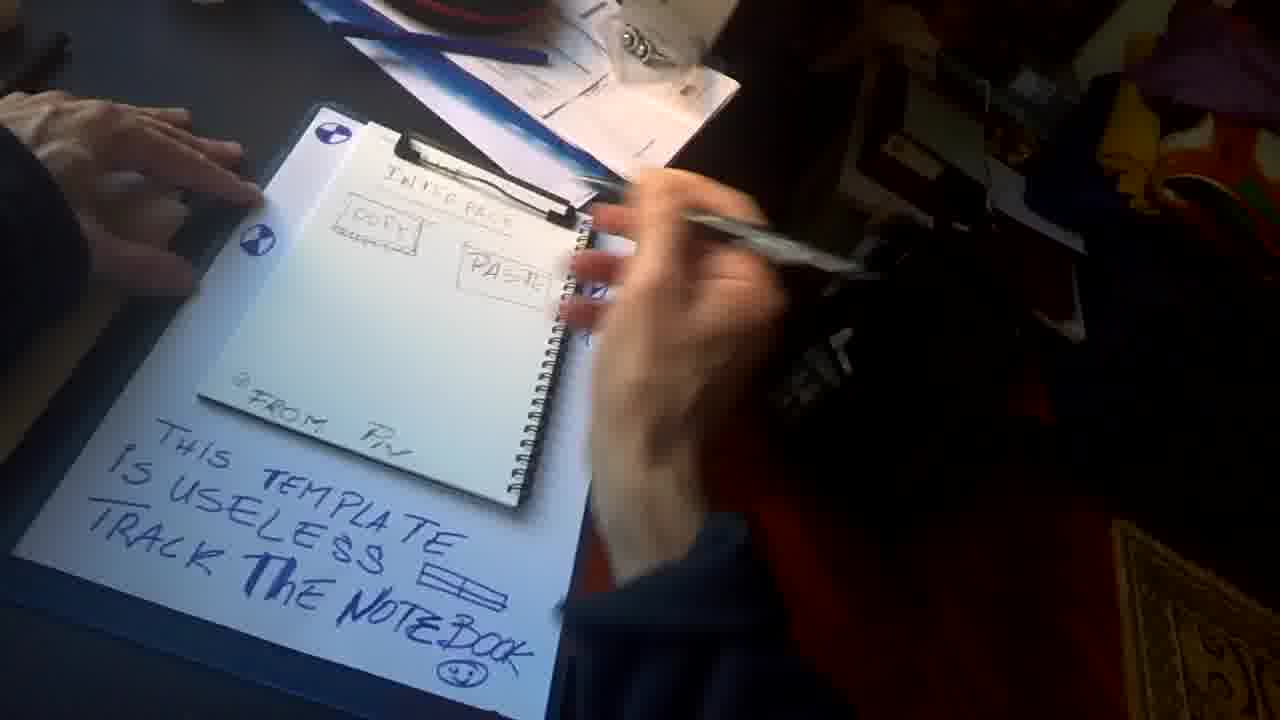 INTERFACE
COPY
PASTE
FROM PIN
THIS TEMPLATE
IS USELESS
TRACK THE NOTEBOOK